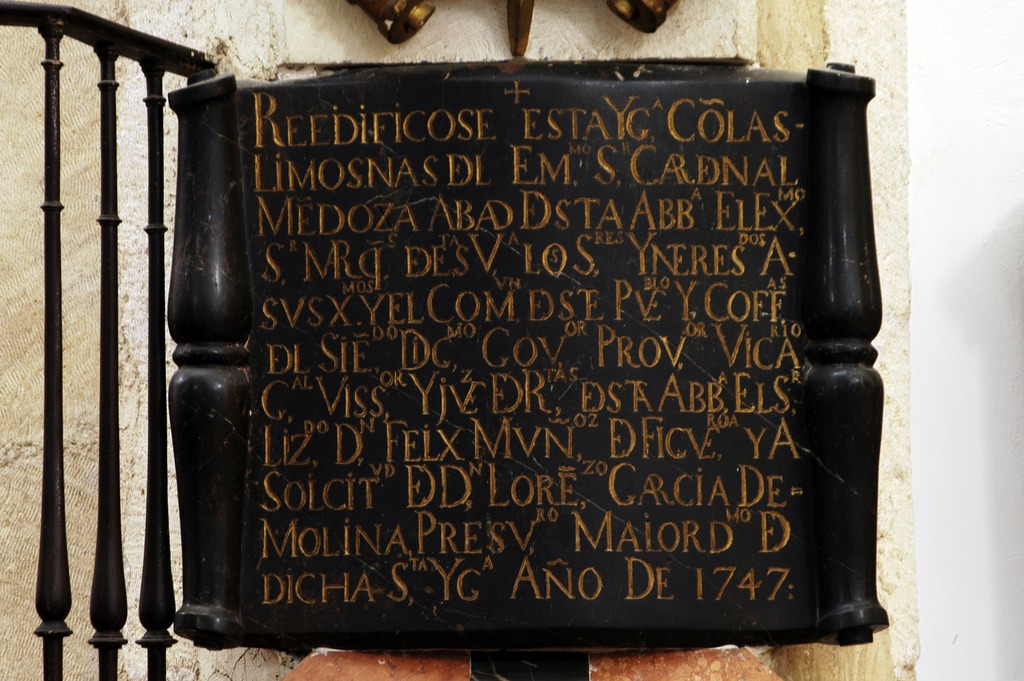 +
REEDIFICOSE ESTA YG^A CŌLAS-
LIMOSNAS DL EM.^MO S.^R CARDNAL
MĒDOZA ABAD DSTA ABB^A EL EX.^MO
S.^R MRQ̄^S DE S^TA V.^A LOS S.^RES YNERES^DOS A-
SVS X.^MOS Y EL COM^VN DSTE PVE^BLO Y COFF.^AS
DL SIE,^DO DC,^MO GOV^OR PROV,^OR VICA^RIO
G,^AL VISS^OR Y JVEZ D R^TAS, DSTA ABB,^A EL S,^R
LIZ,^DO D,^N FELIX MVN,^OZ D FIGVE,^ROA Y A
SOLCIT^VD D D,^N LORĒ,^ZO GARCIA DE=
MOLINA PRESV^RO MAIORD^MO D
DICHA S,^TA YG^A AÑO DE 1747: